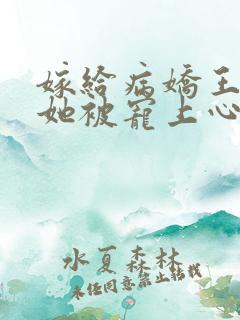 嫁給病嬌王
她被寵上心
水夏森林
未经同意禁止转载